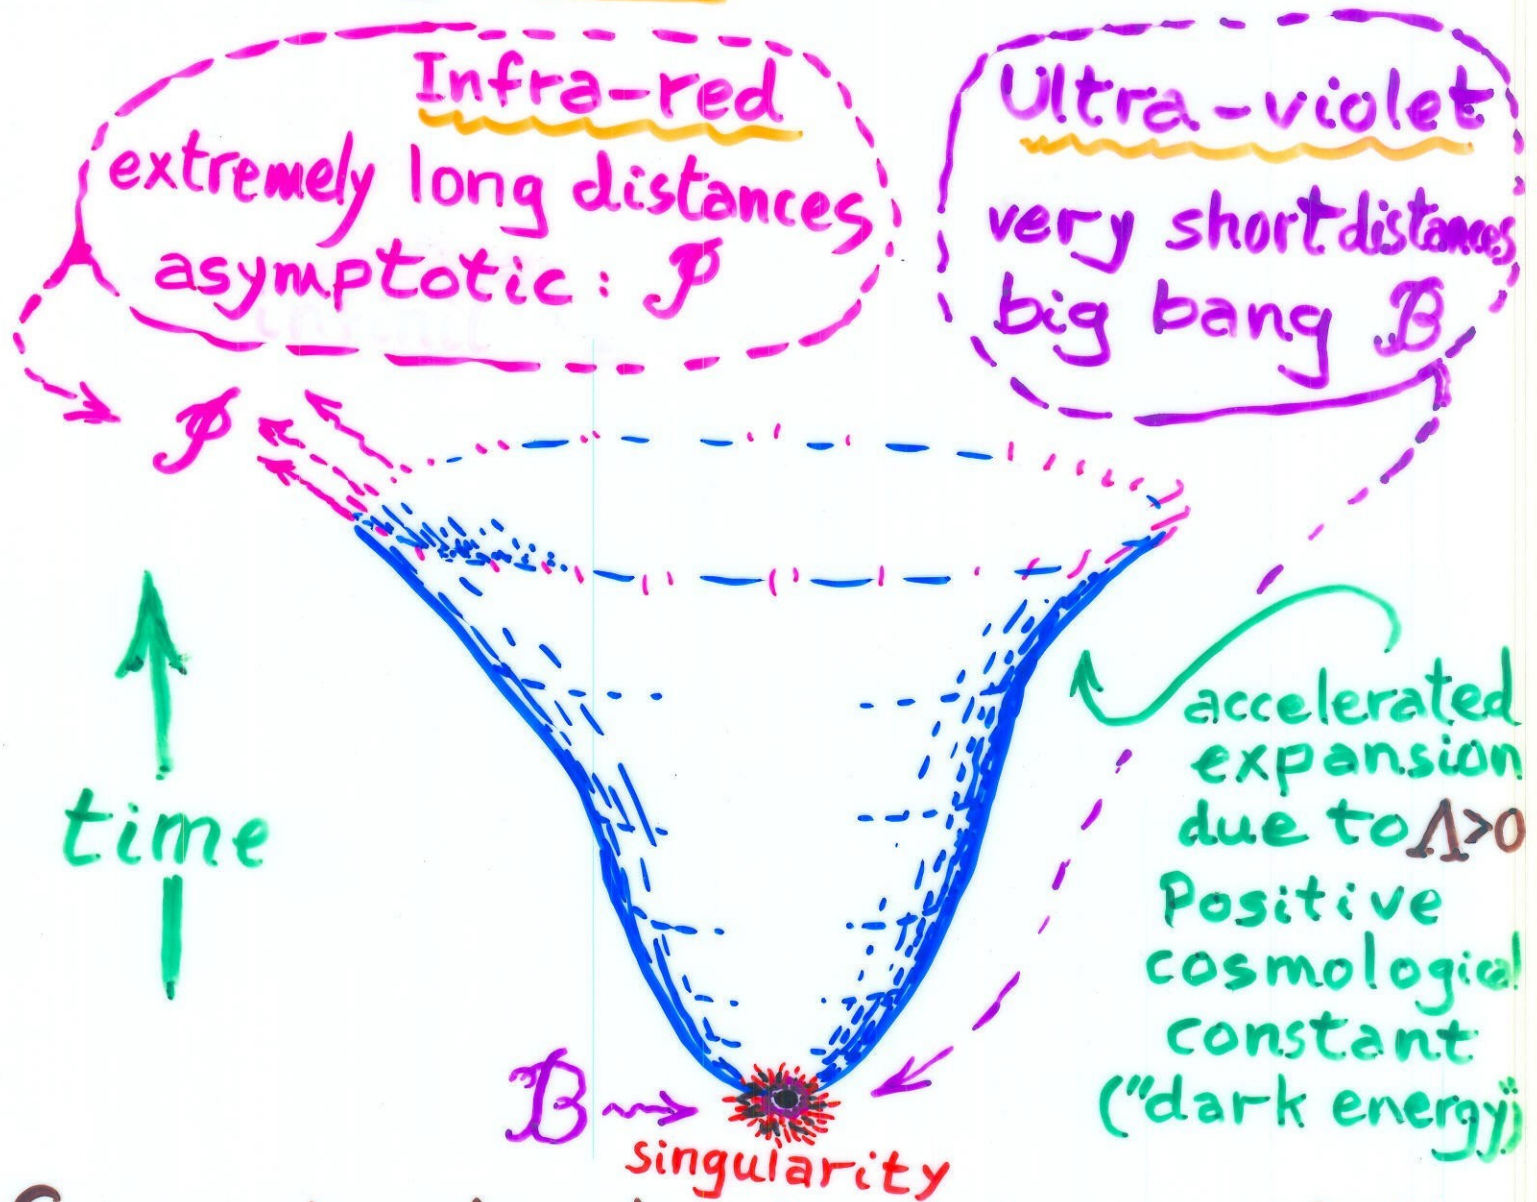 Infra-red
extremely long distances
asymptotic: 𝒫
Ultra-violet
very short distances
big bang ℬ
𝒫
time
accelerated
expansion
due to Λ>0
Positive
cosmological
constant
("dark energy")
ℬ
singularity